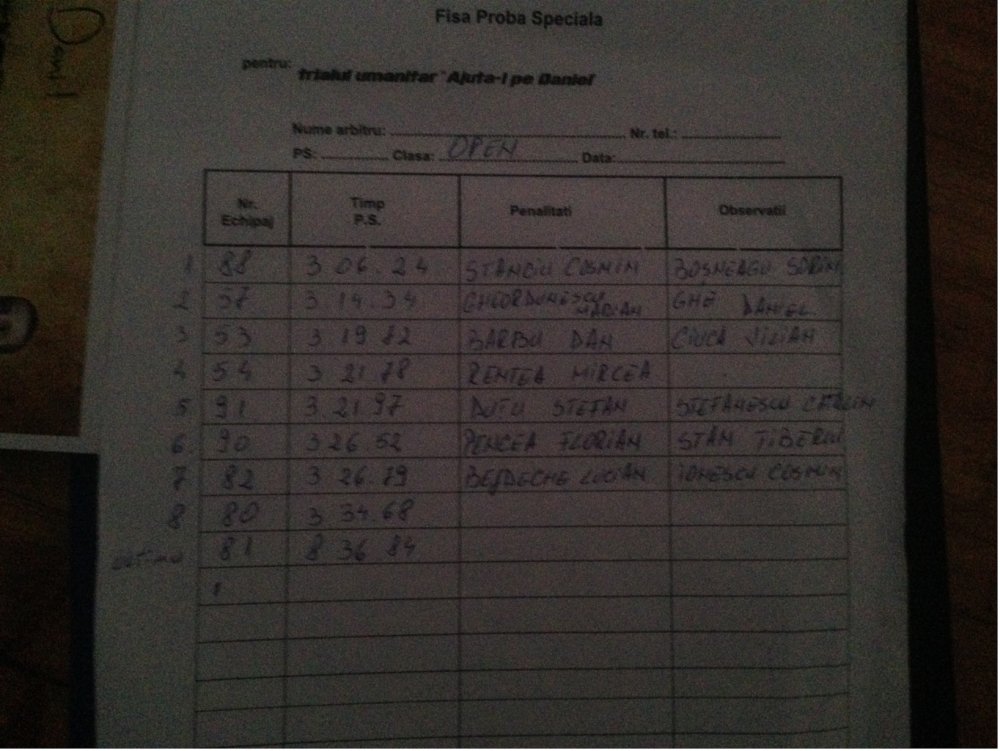 Fisa Proba Speciala
pentru: trialul umanitar "Ajuta-l pe Daniel
Nume arbitru: Nr. tel.:
PS: Clasa: OPEN Data:
Nr. Echipaj Timp P.S. Penalitati Observatii
1 88 3 06.24 STANCIU COSMIN BOSNEAGU SORIN
2 57 3 14.34 MARIAN GHE DANIEL
3 53 3 19 82 BARBU DAN CIUCA
4 54 3 21 78 RENTEA MIRCEA
5 91 3.21.97 DUTU STEFAN STEFANESCU CATALIN
6. 90 3 26.52 PENCEA FLORIAN STAN TIBERIU
7 82 3 26.79 LUCIAN IONESCU COSMIN
8 80 3 34.68
81 8 36 84